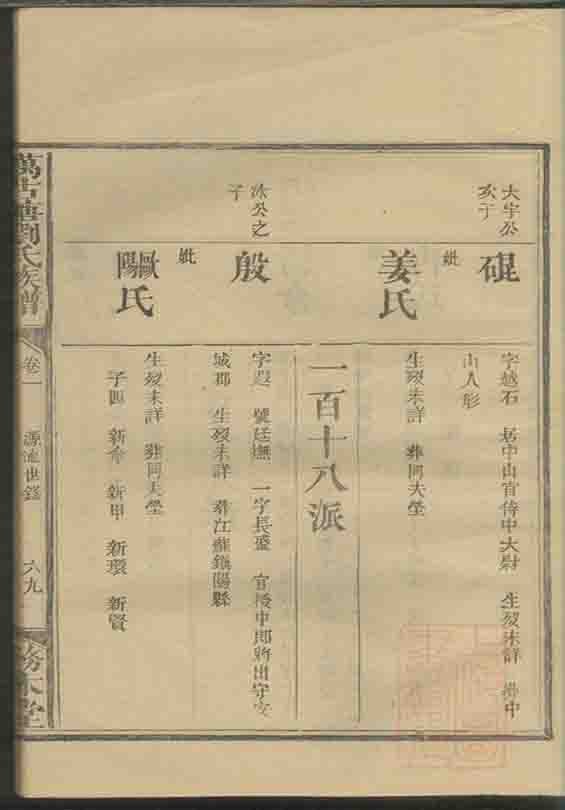 大宇公
亥子
硍
字越石　居中山官侍中大尉　生歿未詳　葬中
山人形
妣
姜氏
生歿未詳　葬同夫塋
一百十八派
冰公之
子
殷
字　號廷撫　一字長盛　官授中郎將出守安
城郡　生歿未詳　葬江蘇鎮陽縣
妣
歐陽氏
生歿未詳　葬同夫塋
子四　新命　新甲　新環　新賢
萬古塘劉氏族譜
卷一
源流世錄
六九
務本堂